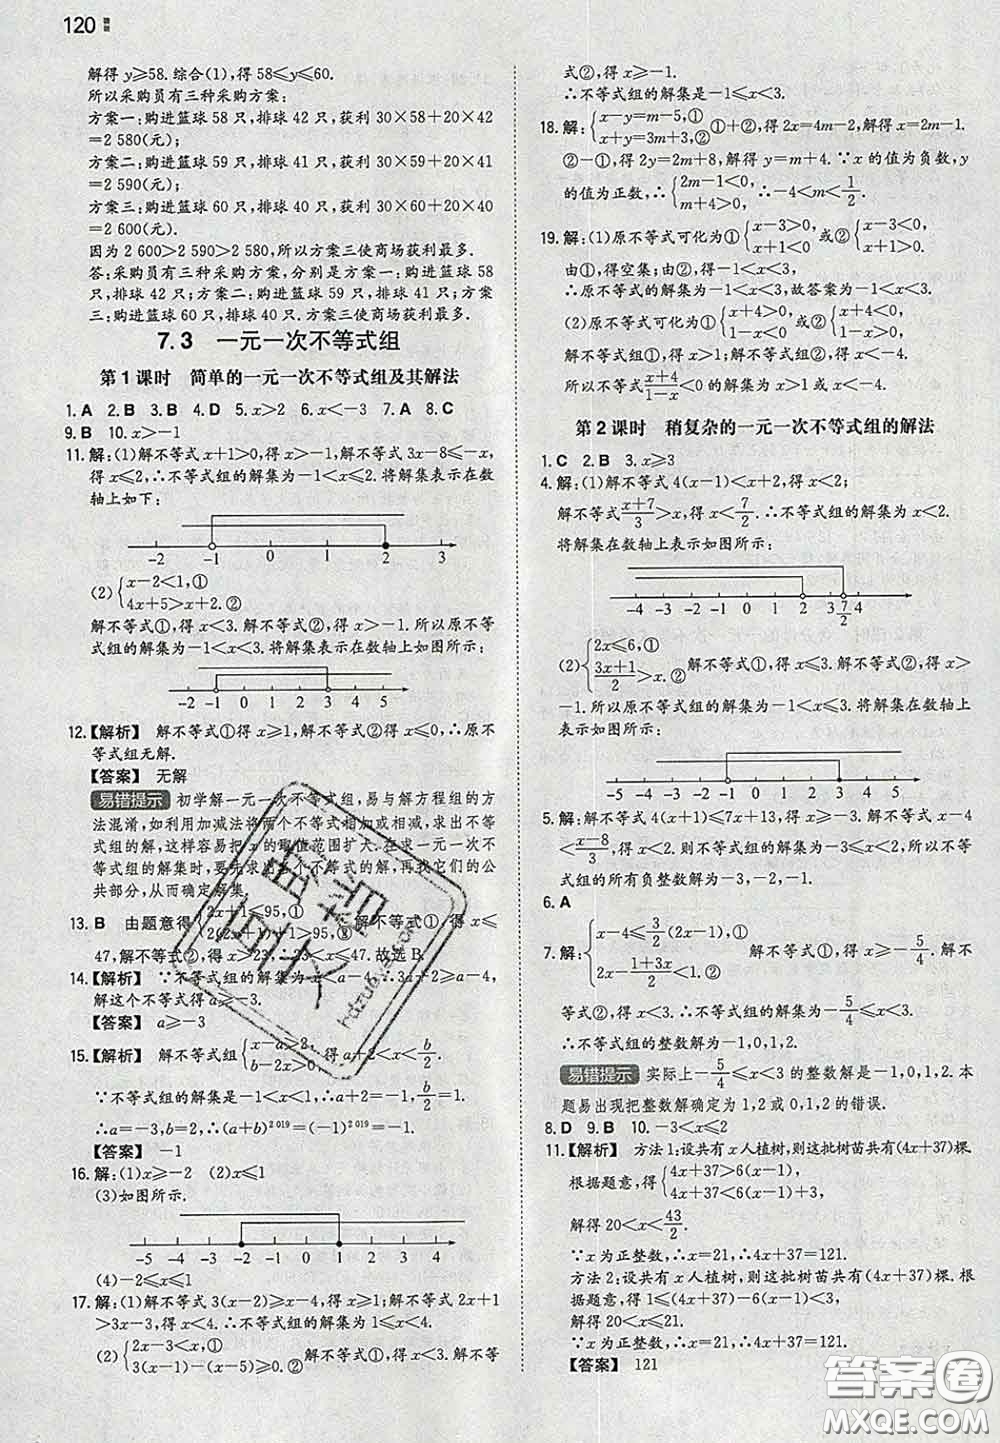 120
解得 y≥58.综合(1),得 58≤y≤60.
所以采购员有三种采购方案:
方案一:购进篮球 58 只,排球 42 只,获利 30×58+20×42
=2 580(元);
方案二:购进篮球 59 只,排球 41 只,获利 30×59+20×41
=2 590(元);
方案三:购进篮球 60 只,排球 40 只,获利 30×60+20×40
=2 600(元).
因为 2 600>2 590>2 580,所以方案三使商场获利最多.
答:采购员有三种采购方案,分别是方案一:购进篮球 58
只,排球 42 只;方案二:购进篮球 59 只,排球 41 只;方案
三:购进篮球 60 只,排球 40 只.方案三使商场获利最多.
7.3 一元一次不等式组
第 1 课时 简单的一元一次不等式组及其解法
1.A 2.B 3.B 4.D 5.x>2 6.x<-3 7.A 8.C
9.B 10.x>-1
11.解:(1)解不等式 x+1>0,得 x>-1,解不等式 3x-8≤-x,
得 x≤2.所以不等式组的解集为-1<x≤2.将解集表示在数
轴上如下:
-2 -1 0 1 2 3
(2){x-2<1,①
4x+5>x+2.②
解不等式①,得 x<3.解不等式②,得 x>-1.所以原不等
式组的解集为-1<x<3.将解集表示在数轴上如图所示:
-2 -1 0 1 2 3 4 5
12.【解析】 解不等式①得 x≥1,解不等式②得 x≤0,∴原不
等式组无解.
【答案】 无解
易错提示 初学解一元一次不等式组,易与解方程组的方
法混淆,如利用加减法将两个不等式相加或相减,求出不等
式组的解,这样容易把 x 的取值范围扩大.在求一元一次不
等式组的解集时,要先求出各个不等式的解集,再找它们的公
共部分,从而确定解集.
13.B 由题意得{2x+1≤95,①
2(2x+1)+1>95,② 解不等式①,得 x≤
47,解不等式②,得 x>23,∴23<x≤47.故选 B.
14.【解析】 ∵不等式组的解集为 x<a-4,∴3a+2≥a-4,
解这个不等式得 a≥-3.
【答案】 a≥-3
15.【解析】 解不等式组{x-a>2,
b-2x>0, 得 a+2<x<b/2.
∵不等式组的解集是-1<x<1,∴a+2=-1,b/2=1.
∴a=-3,b=2,∴(a+b)²⁰¹⁹=(-1)²⁰¹⁹=-1.
【答案】 -1
16.解:(1)x≥-2 (2)x≤1
(3)如图所示.
-5 -4 -3 -2 -1 0 1 2 3 4 5
(4)-2≤x≤1
17.解:(1)解不等式 3(x-2)≥x-4,得 x≥1;解不等式 2x+1
>3x-3,得 x<4.∴不等式组的解集为 1≤x<4.
(2){2x-3<x,①
3(x-1)-(x-5)≥0.② 解不等式①,得 x<3.解不等
式②,得 x≥-1.
∴不等式组的解集是-1≤x<3.
18.解:{x-y=m-5,①
x+y=3m+3,② ①+②,得 2x=4m-2,解得 x=2m-1.
②-①,得 2y=2m+8,解得 y=m+4.∵x 的值为负数,y
的值为正数,∴{2m-1<0,
m+4>0, ∴-4<m<1/2.
19.解:(1)原不等式可化为①{x-3>0,
x+1<0 或②{x-3<0,
x+1>0.
由①,得空集;由②,得-1<x<3.
∴原不等式的解集为-1<x<3,故答案为-1<x<3.
(2)原不等式可化为①{x+4>0,
1-x<0 或②{x+4<0,
1-x>0.
由①,得 x>1;解不等式组②,得 x<-4.
所以不等式 x+4/1-x<0 的解集为 x>1 或 x<-4.
第 2 课时 稍复杂的一元一次不等式组的解法
1.C 2.B 3.x≥3
4.解:(1)解不等式 4(x-1)<x+2,得 x<2;
解不等式 x+7/3>x,得 x<7/2.∴不等式组的解集为 x<2.
将解集在数轴上表示如图所示:
-4 -3 -2 -1 0 1 2 3 7/2 4
(2){2x≤6,①
3x+1/2>x.② 解不等式①,得 x≤3.解不等式②,得 x>
-1.所以不等式组的解集为-1<x≤3.将解集在数轴上
表示如图所示:
-4 -3 -2 -1 0 1 2 3 4
5.解:解不等式 4(x+1)≤7x+13,得 x≥-3.解不等式 x-4
<x-8/3,得 x<2.则不等式组的解集为-3≤x<2.所以不等
式组的所有负整数解为-3,-2,-1.
6.A
7.解:{x-4≤3/2(2x-1),①
2x-1+3x/2<1,② 解不等式①,得 x≥-5/4.解不
等式②,得 x<3.∴不等式组的解集为-5/4≤x<3.
∴不等式组的整数解为-1,0,1,2.
易错提示 实际上-5/4≤x<3 的整数解是-1,0,1,2.本
题易出现把整数解确定为 1,2 或 0,1,2 的错误.
8.D 9.B 10.-3<x≤2
11.【解析】 方法 1:设共有 x 人植树,则这批树苗共有(4x+37)棵.
根据题意,得{4x+37>6(x-1),
4x+37<6(x-1)+3,
解得 20<x<43/2.
∵x 为正整数,∴x=21,∴4x+37=121.
方法 2:设共有 x 人植树,则这批树苗共有(4x+37)棵.根
据题意,得 1≤(4x+37)-6(x-1)<3,
解得 20<x≤21.
∵x 为正整数,∴x=21,∴4x+37=121.
【答案】 121
答案圈
MXQE.COM